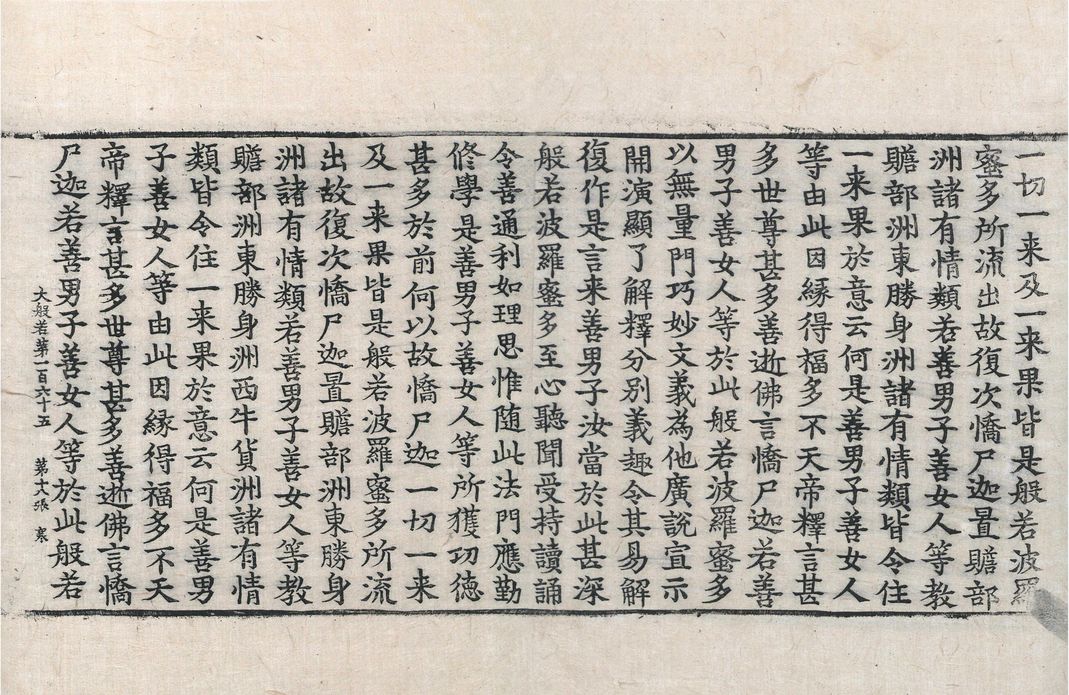 一切一来及一来果皆是般若波羅
蜜多所流出故復次憍尸迦置贍部
洲諸有情類若善男子善女人等教
贍部洲東勝身洲諸有情類皆令住
一来果於意云何是善男子善女人
等由此因緣得福多不天帝釋言甚
多世尊甚多善逝佛言憍尸迦若善
男子善女人等於此般若波羅蜜多
以無量門巧妙文義為他廣說宣示
開演顯了解釋分別義趣令其易解
復作是言来善男子汝當於此甚深
般若波羅蜜多至心聽聞受持讀誦
令善通利如理思惟随此法門應勤
修學是善男子善女人等所獲功德
甚多於前何以故憍尸迦一切一来
及一来果皆是般若波羅蜜多所流
出故復次憍尸迦置贍部洲東勝身
洲諸有情類若善男子善女人等教
贍部洲東勝身洲西牛貨洲諸有情
類皆令住一来果於意云何是善男
子善女人等由此因緣得福多不天
帝釋言甚多世尊甚多善逝佛言憍
尸迦若善男子善女人等於此般若
大般若第一百六十五 第十六張 寒